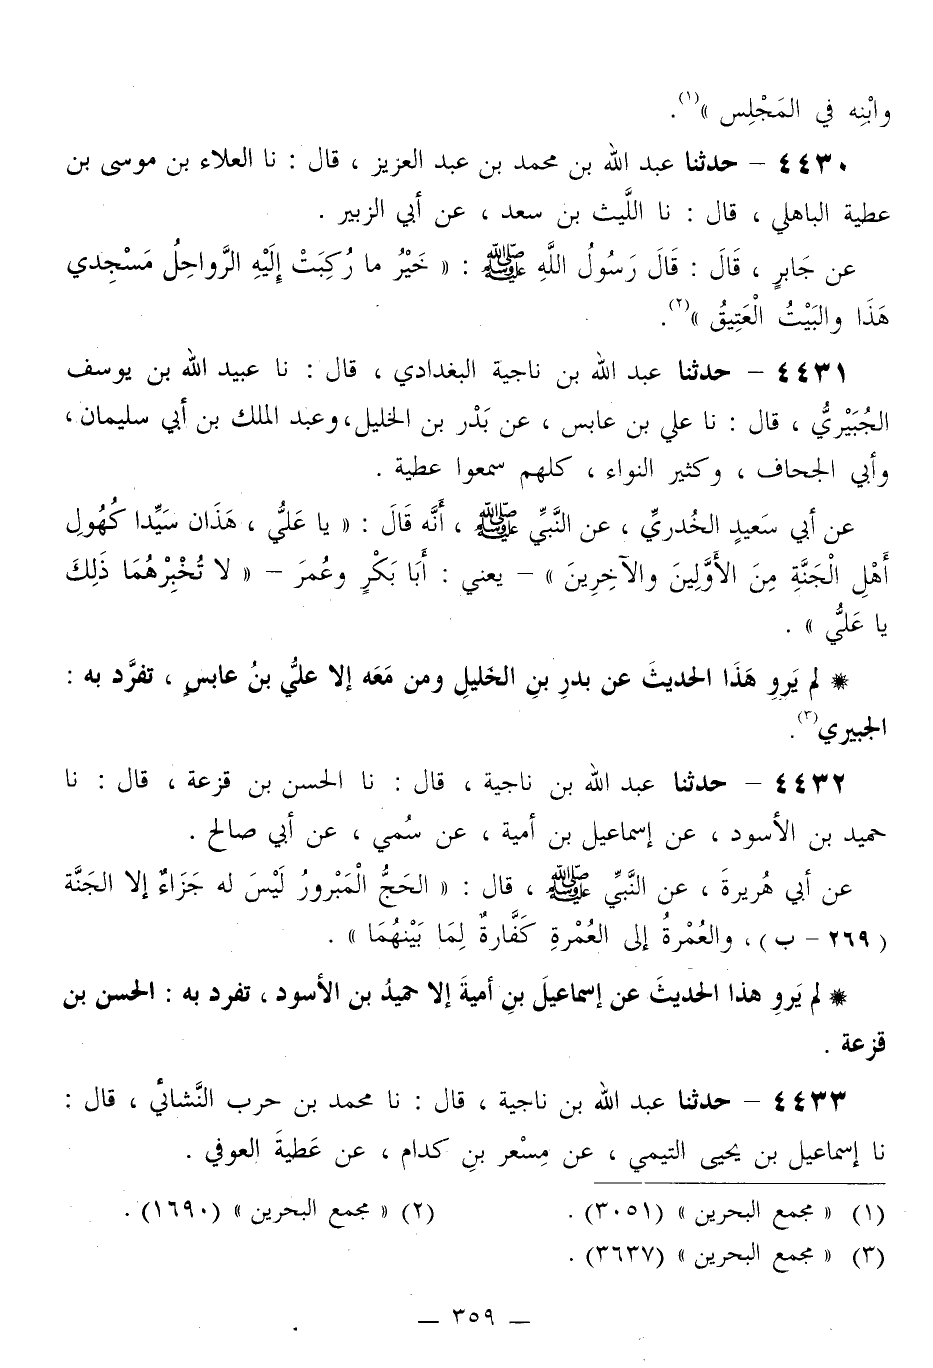 وابْنِه في المَجْلِس »(١).
٤٤٣٠ – حدثنا عبد الله بن محمد بن عبد العزيز ، قال : نا العلاء بن موسى بن
عطية الباهلي ، قال : نا اللَّيث بن سعد ، عن أبي الزبير .
عن جَابرٍ ، قَالَ : قَالَ رَسُولُ اللَّهِ ﷺ : « خَيْرُ ما رُكِبَتْ إِلَيْهِ الرَّواحِلُ مَسْجِدي
هَذَا والبَيْتُ الْعَتِيقُ »(٢).
٤٤٣١ – حدثنا عبد الله بن ناجية البغدادي ، قال : نا عبيد الله بن يوسف
الجُبَيْريُّ ، قال : نا علي بن عابس ، عن بَدْر بن الخليل، وعبد الملك بن أبي سليمان ،
وأبي الجحاف ، وكثير النواء ، كلهم سمعوا عطية .
عن أبي سَعيدٍ الخُدريِّ ، عن النَّبيِّ ﷺ ، أَنَّه قَالَ : « يا عَليُّ ، هَذَان سَيِّدا كُهُولِ
أَهْلِ الْجَنَّةِ مِنَ الأَوَّلِينَ والآخِرِينَ » – يعني : أَبَا بَكْرٍ وعُمرَ – « لا تُخْبِرْهُمَا ذَلِكَ
يا عَليُّ » .
* لم يَروِ هَذَا الحديثَ عن بدرِ بنِ الخَليلِ ومن مَعَه إلا عليُّ بنُ عابسٍ ، تفرَّد به :
الجبيري(٣).
٤٤٣٢ – حدثنا عبد الله بن ناجية ، قال : نا الحسن بن قزعة ، قال : نا
حميد بن الأسود ، عن إسماعيل بن أمية ، عن سُمي ، عن أبي صالح .
عن أبي هُريرةَ ، عن النَّبيِّ ﷺ ، قال : « الحَجُّ الْمَبْرورُ لَيْسَ له جَزَاءٌ إلا الجَنَّة
( ٢٦٩ – ب ) ، والعُمْرةُ إلى العُمْرةِ كَفَّارةٌ لِمَا بَيْنهُمَا » .
* لم يَروِ هذا الحديثَ عن إسماعيلَ بنِ أميةَ إلا حميدُ بن الأسود ، تفرد به : الحسن بن
قزعة .
٤٤٣٣ – حدثنا عبد الله بن ناجية ، قال : نا محمد بن حرب النَّشائي ، قال :
نا إسماعيل بن يحيى التيمي ، عن مِسْعر بنِ كدام ، عن عَطيةَ العوفي .
(١) « مجمع البحرين » (٣٠٥١) . (٢) « مجمع البحرين » (١٦٩٠) .
(٣) « مجمع البحرين » (٣٦٣٧) .
– ٣٥٩ –